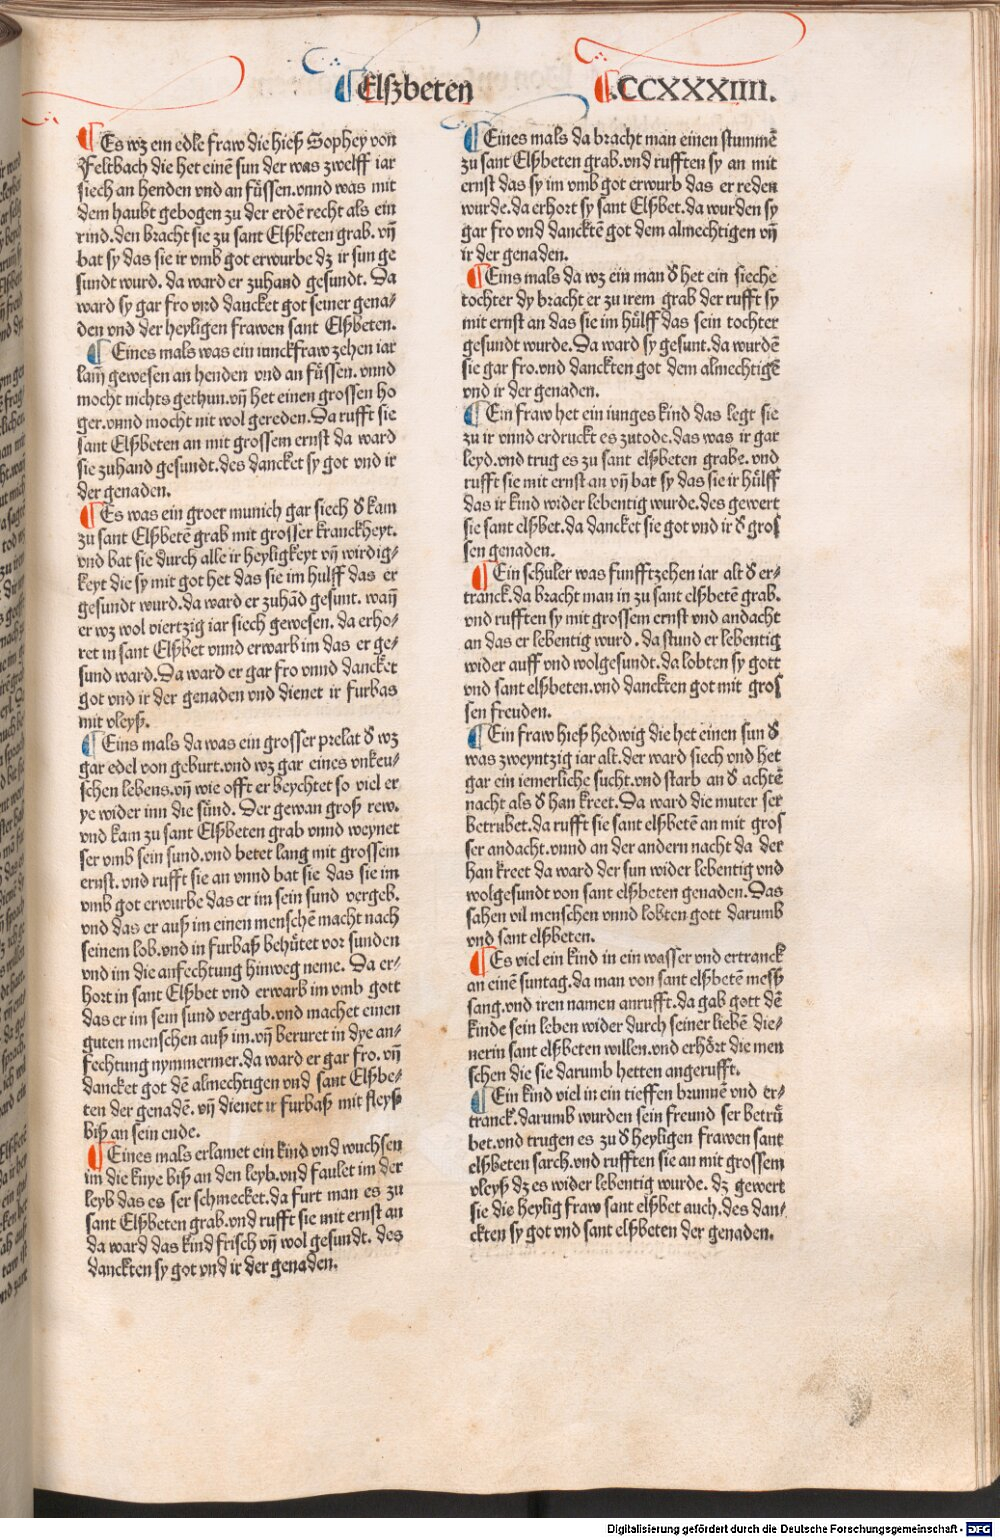 Elßbeten
.CCXXXIIII.
¶ Es wz ein edle fraw die hieß Sophey von
Feltbach die het einē sun der was zwelff iar
siech an henden vnd an füssen. vnnd was mit
dem haubt gebogen zu der erdē recht als ein
rind. den bracht sie zu sant Elßbeten grab. vñ
bat sy das sie ir vmb got erwurbe dz ir sun ge
sundt wurd. da ward er zuhand gesundt. Da
ward sy gar fro vnd dancket got seiner gena⸗
den vnd der heyligen frawen sant Elßbeten.
¶ Eines mals was ein iunckfraw zehen iar
lam̃ gewesen an henden vnd an füssen. vnnd
mocht nichts gethun. vñ het einen grossen ho
ger. vnnd mocht nit wol gereden. Da rufft sie
sant Elßbeten an mit grossem ernst da ward
sie zuhand gesundt. des dancket sy got vnd ir
der genaden.
¶ Es was ein groer munich gar siech d̕ kam
zu sant Elßbetē grab mit grosser kranckheyt.
vnd bat sie durch alle ir heyligkeyt vñ wirdig⸗
keyt die sy mit got het das sie im hulff das er
gesundt wurd. da ward er zuhād gesunt. wañ
er wz wol viertzig iar siech gewesen. da erho⸗
ret in sant Elßbet vnnd erwarb im das er ge⸗
sund ward. Da ward er gar fro vnnd dancket
got vnd ir der genaden vnd dienet ir furbas
mit vleyß.
¶ Eins mals da was ein grosser prelat d̕ wz
gar edel von geburt. vnd wz gar eines vnkeu⸗
schen lebens. vñ wie offt er beychtet so viel er
ye wider inn die sünd. Der gewan groß rew.
vnd kam zu sant Elßbeten grab vnnd weynet
ser vmb sein sund. vnd betet lang mit grossem
ernst. vnd rufft sie an vnnd bat sie das sie im
vmb got erwurbe das er im sein sund vergeb.
vnd das er auß im einen menschē macht nach
seinem lob. vnd in furbaß behütet vor sunden
vnd im die anfechtung hinweg neme. Da er⸗
hort in sant Elßbet vnd erwarb im vmb gott
das er im sein sund vergab. vnd machet einen
guten menschen auß im. vñ beruret in dye an⸗
fechtung nymmermer. da ward er gar fro. vñ
dancket got dē almechtigen vnd sant Elßbe⸗
ten der genadē. vñ dienet ir furbaß mit fleyß
biß an sein ende.
¶ Eines mals erlamet ein kind vnd wuchsen
im die knye biß an den leyb. vnd faulet im der
leyb das es ser schmecket. da furt man es zu
sant Elßbeten grab. vnd rufft sie mit ernst an
da ward das kind frisch vñ wol gesundt. des
danckten sy got vnd ir der genaden.
¶ Eines mals da bracht man einen stummē
zu sant Elßbeten grab. vnd rufften sy an mit
ernst das sy im vmb got erwurb das er reden
wurde. da erhort sy sant Elßbet. da wurden sy
gar fro vnd dancktē got dem almechtigen vñ
ir der genaden.
¶ Eins mals da wz ein man d̕ het ein sieche
tochter dy bracht er zu irem grab der rufft sy
mit ernst an das sie im hülff das sein tochter
gesundt wurde. Da ward sy gesunt. da wurdē
sie gar fro. vnd danckten got dem almechtigē
vnd ir der genaden.
¶ Ein fraw het ein iunges kind das legt sie
zu ir vnnd erdruckt es zutode. das was ir gar
leyd. vnd trug es zu sant elßbeten grabe. vnd
rufft sie mit ernst an vñ bat sy das sie ir hülff
das ir kind wider lebentig wurde. des gewert
sie sant elßbet. da dancket sie got vnd ir d̕ gros
sen genaden.
¶ Ein schuler was funfftzehen iar alt d̕ er⸗
tranck. da bracht man in zu sant elßbetē grab.
vnd rufften sy mit grossem ernst vnd andacht
an das er lebentig wurd. da stund er lebentig
wider auff vnd wolgesundt. da lobten sy gott
vnd sant elßbeten. vnd danckten got mit gros
sen freuden.
¶ Ein fraw hieß hedwig die het einen sun d̕
was zweyntzig iar alt. der ward siech vnd het
gar ein iemerliche sucht. vnd starb an d̕ achtē
nacht als d̕ han kreet. Da ward die muter ser
betrubet. da rufft sie sant elßbetē an mit gros
ser andacht. vnnd an der andern nacht da der
han kreet da ward der sun wider lebentig vnd
wolgesundt von sant elßbeten genaden. Das
sahen vil menschen vnnd lobten gott darumb
vnd sant elßbeten.
¶ Es viel ein kind in ein wasser vnd ertranck
an einē suntag. da man von sant elßbetē messz
sang. vnd iren namen anrufft. da gab gott dē
kinde sein leben wider durch seiner liebē die⸗
nerin sant elßbeten willen. vnd erhört die men
schen die sie darumb hetten angerufft.
¶ Ein kind viel in ein tieffen brunnē vnd er⸗
tranck. darumb wurden sein freund ser betrü
bet. vnd trugen es zu d̕ heyligen frawen sant
elßbeten sarch. vnd rufften sie an mit grossem
vleyß dz es wider lebentig wurde. dz gewert
sie die heylig fraw sant elßbet auch. des dan⸗
ckten sy got vnd sant elßbeten der genaden.
Digitalisierung gefördert durch die Deutsche Forschungsgemeinschaft - DFG